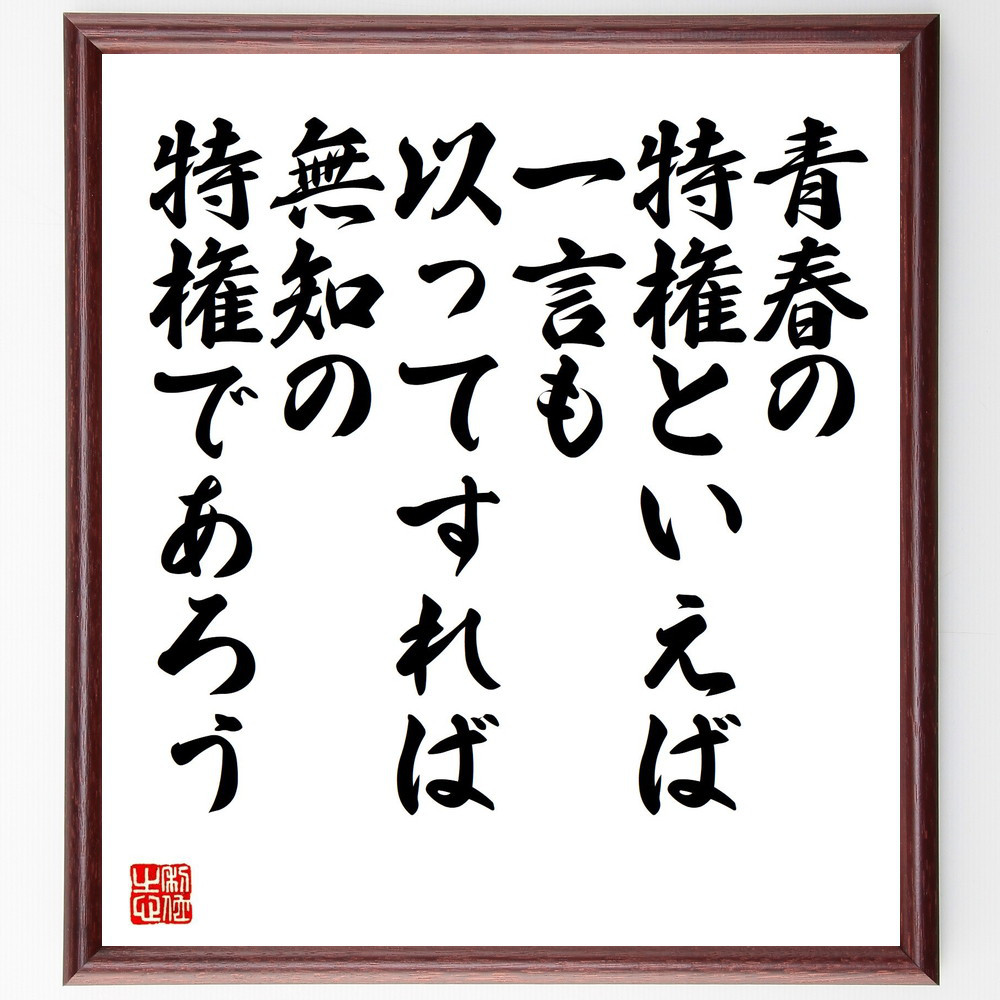 青春の
特権といえば
一言も
以ってすれば
無知の
特権であろう